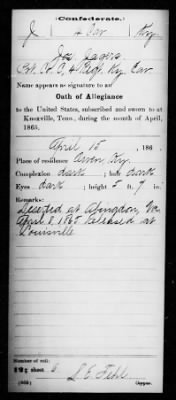 Confederate.
J | 4 Cav | Ky.
Jos Jagers
Pvt. Co. D, 4 Regt. Ky. Cav
Name appears as signature to an
Oath of Allegiance
to the United States, subscribed and sworn to at
Knoxville, Tenn., during the month of April,
1865.
April 15, 186
Place of residence Avon, Ky.
Complexion dark; hair dark
Eyes dark; height 5 ft. 7 in.
Remarks:
Deserted at Abingdon, Va.
April 8, 1865 released at
Louisville
Number of roll:
sheet
Copyist.